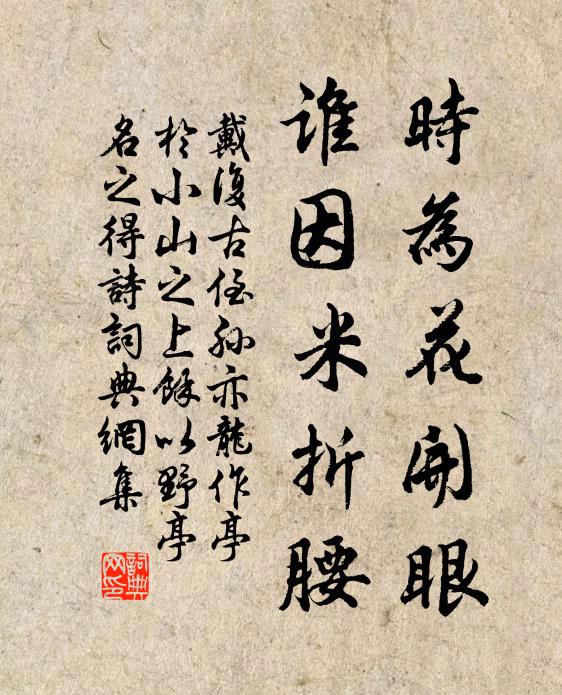 時為花開眼
誰因米折腰
戴復古侄孫亦龍作亭
於小山之上餘以野亭
名之得詩詞典網集
詞典
网印